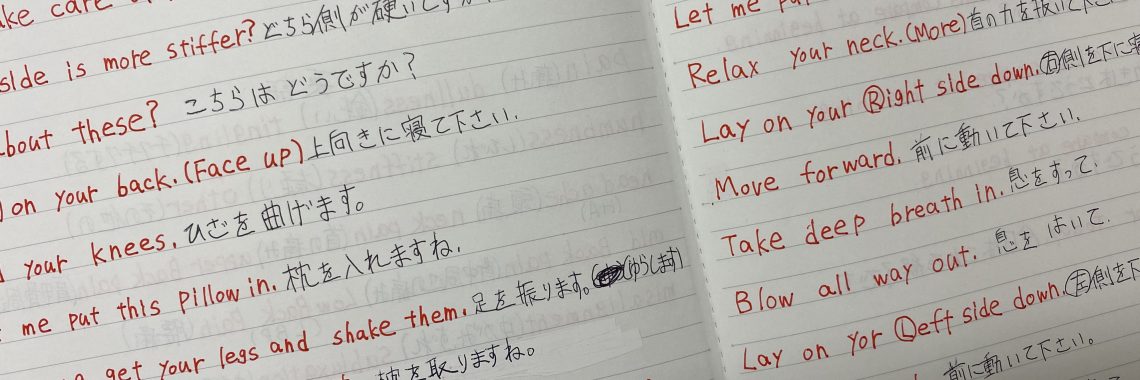 ke care
side is more stiffer? どちら側が硬いですか
bout these? こちらはどうですか?
on your back. (Face up) 上向きに寝て下さい.
your knees. ひざを曲げます。
me put this pillow in. 枕を入れますね.
get your legs and shake them. 足を振ります。(ゆらします)
枕を取りますね。
Let me pu
Relax your neck. (More) 首の力を抜いて下さ
Lay on your Right side down. 右側を下に寝
Move forward. 前に動いて下さい.
Take deep breath in. 息をすって.
Blow all way out. 息をはいて.
Lay on yor Left side down. 左側を下
前に動いて下さい。